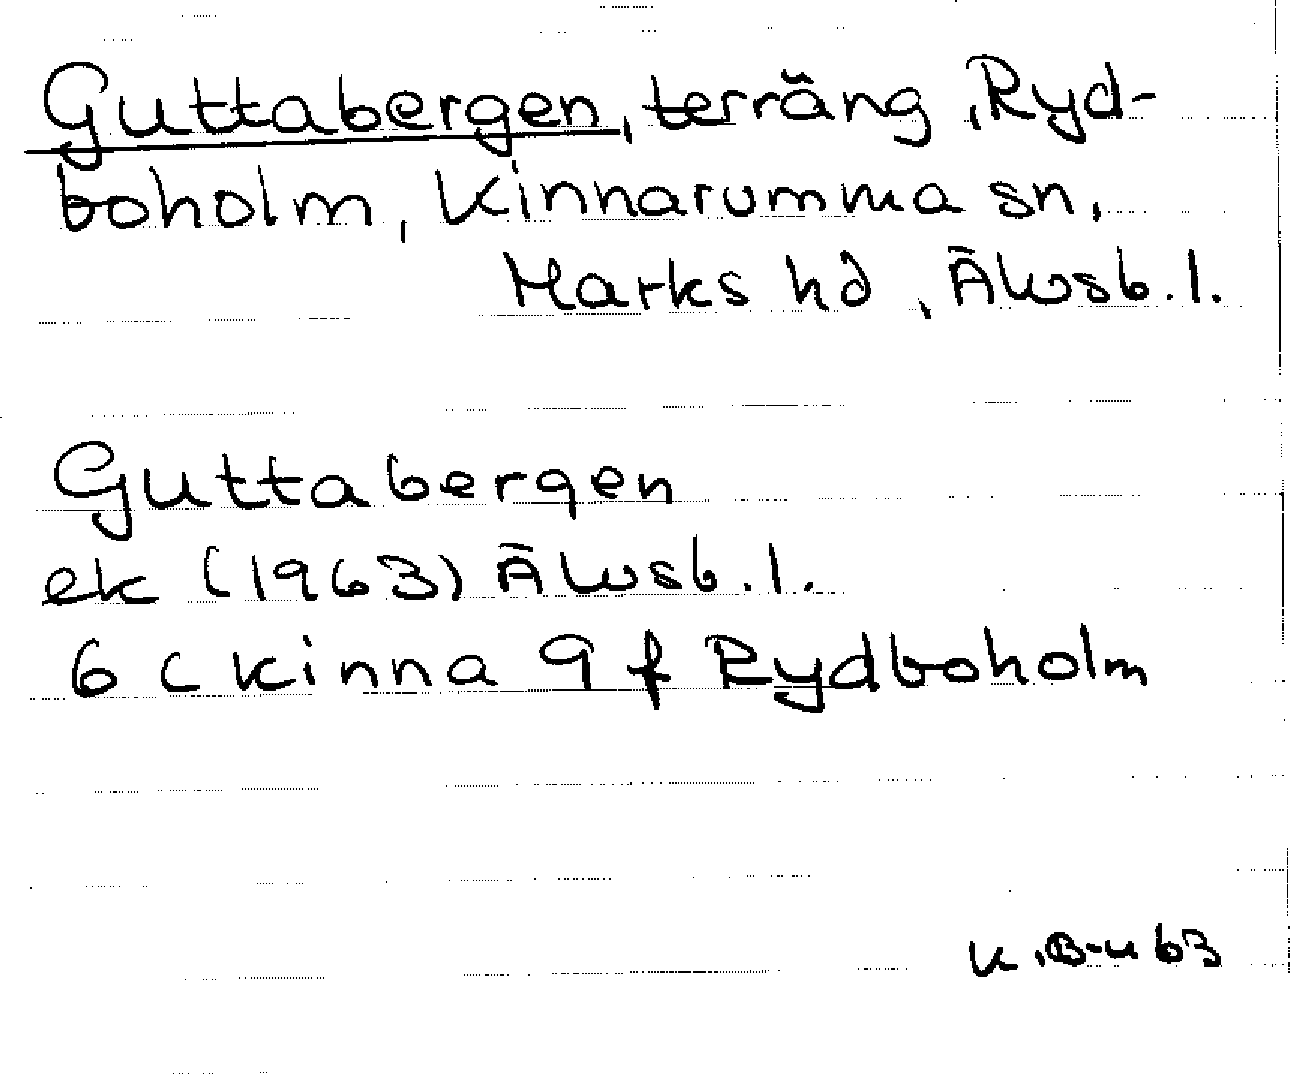 Guttabergen, terräng, Ryd-
boholm, Kinnarumma sn,
Marks hd, Älvsb. l.
Guttabergen
ek (1963) Älvsb. l.
6 C Kinna 9 f Rydboholm
63